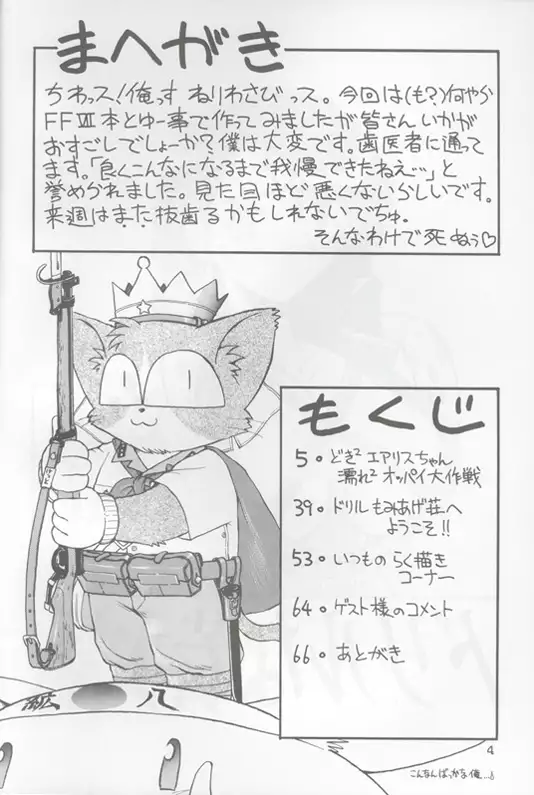 まへがき
ちわっス!俺っす ねりわさびっス。今回は(も?)何やら
FFⅦ本とゆー事で作ってみましたが皆さんいかが
おすごしでしょーか?僕は大変です。歯医者に通って
ます。「良くこんなになるまで我慢できたねえ…」と
誉められました。見た目ほど悪くないらしいです。
来週はまた抜歯るかもしれないでちゅ。
そんなわけで死ぬぅ♡
もくじ
5。どき² エアリスちゃん
濡れ² オッパイ大作戦
39。ドリルもみあげ荘へ
ようこそ!!
53。いつものらく描き
コーナー
64。ゲスト様のコメント
66。あとがき
八
4
こんなんばっかな俺…♪